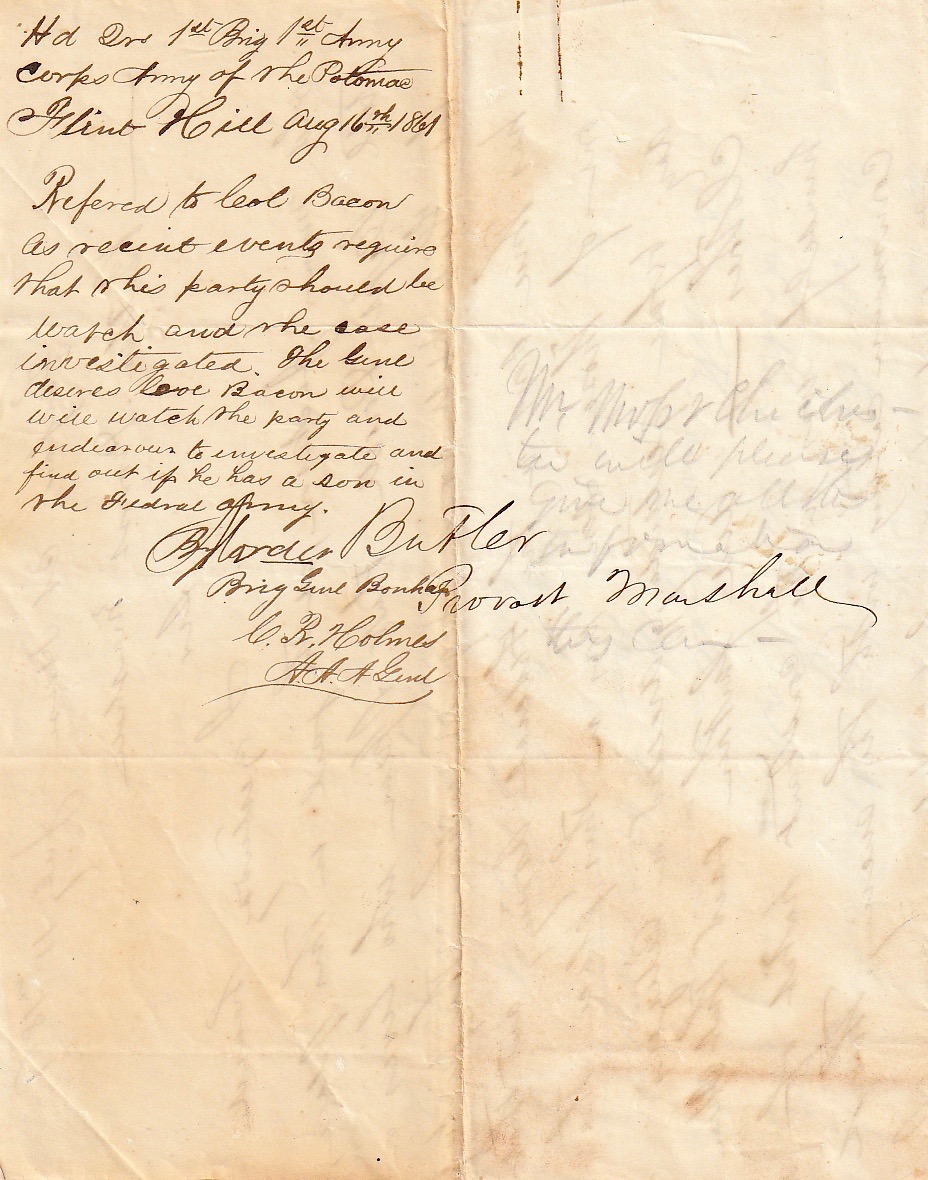 Hd Qrs 1st Brig 1st Army
Corps Army of the Potomac
Flint Hill Aug 16th 1861
Refered to Col Bacon
As recint events require
that this party should be
watch and the case
investigated. The Genl
desires Bacon will
will watch the party and
endeavour to investigate and
find out if he has a son in
the Fedral army.
By order
Brig Genl Bonham
C. R. Holmes
A. A. A Genl
Butler
Provost Marshall
Mr
will please
give me
information